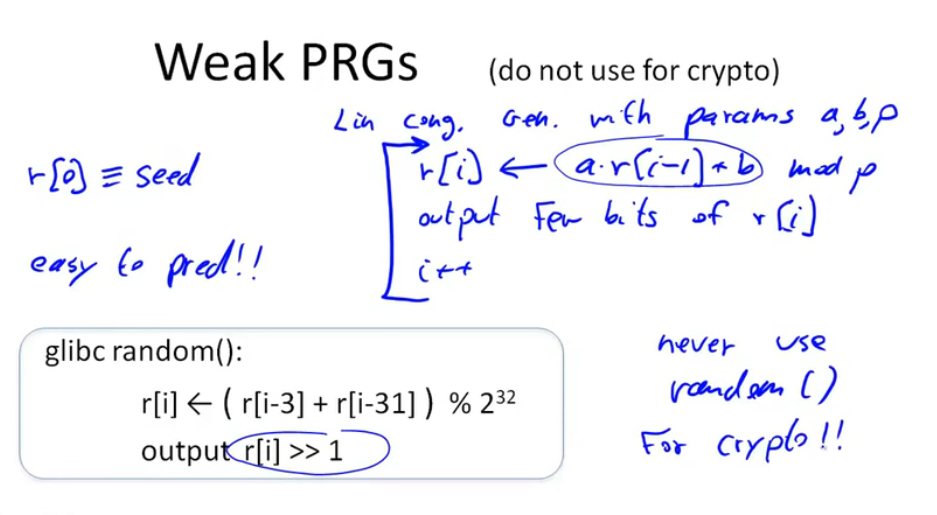 Weak PRGs (do not use for crypto)
Lin cong. Gen. with params a,b,p
r[0] ≡ seed
r[i] ← a·r[i-1]+b mod p
output few bits of r[i]
easy to pred!!
i++
glibc random():
r[i] ← ( r[i-3] + r[i-31] ) % 2³²
output r[i] >> 1
never use
random()
For crypto!!